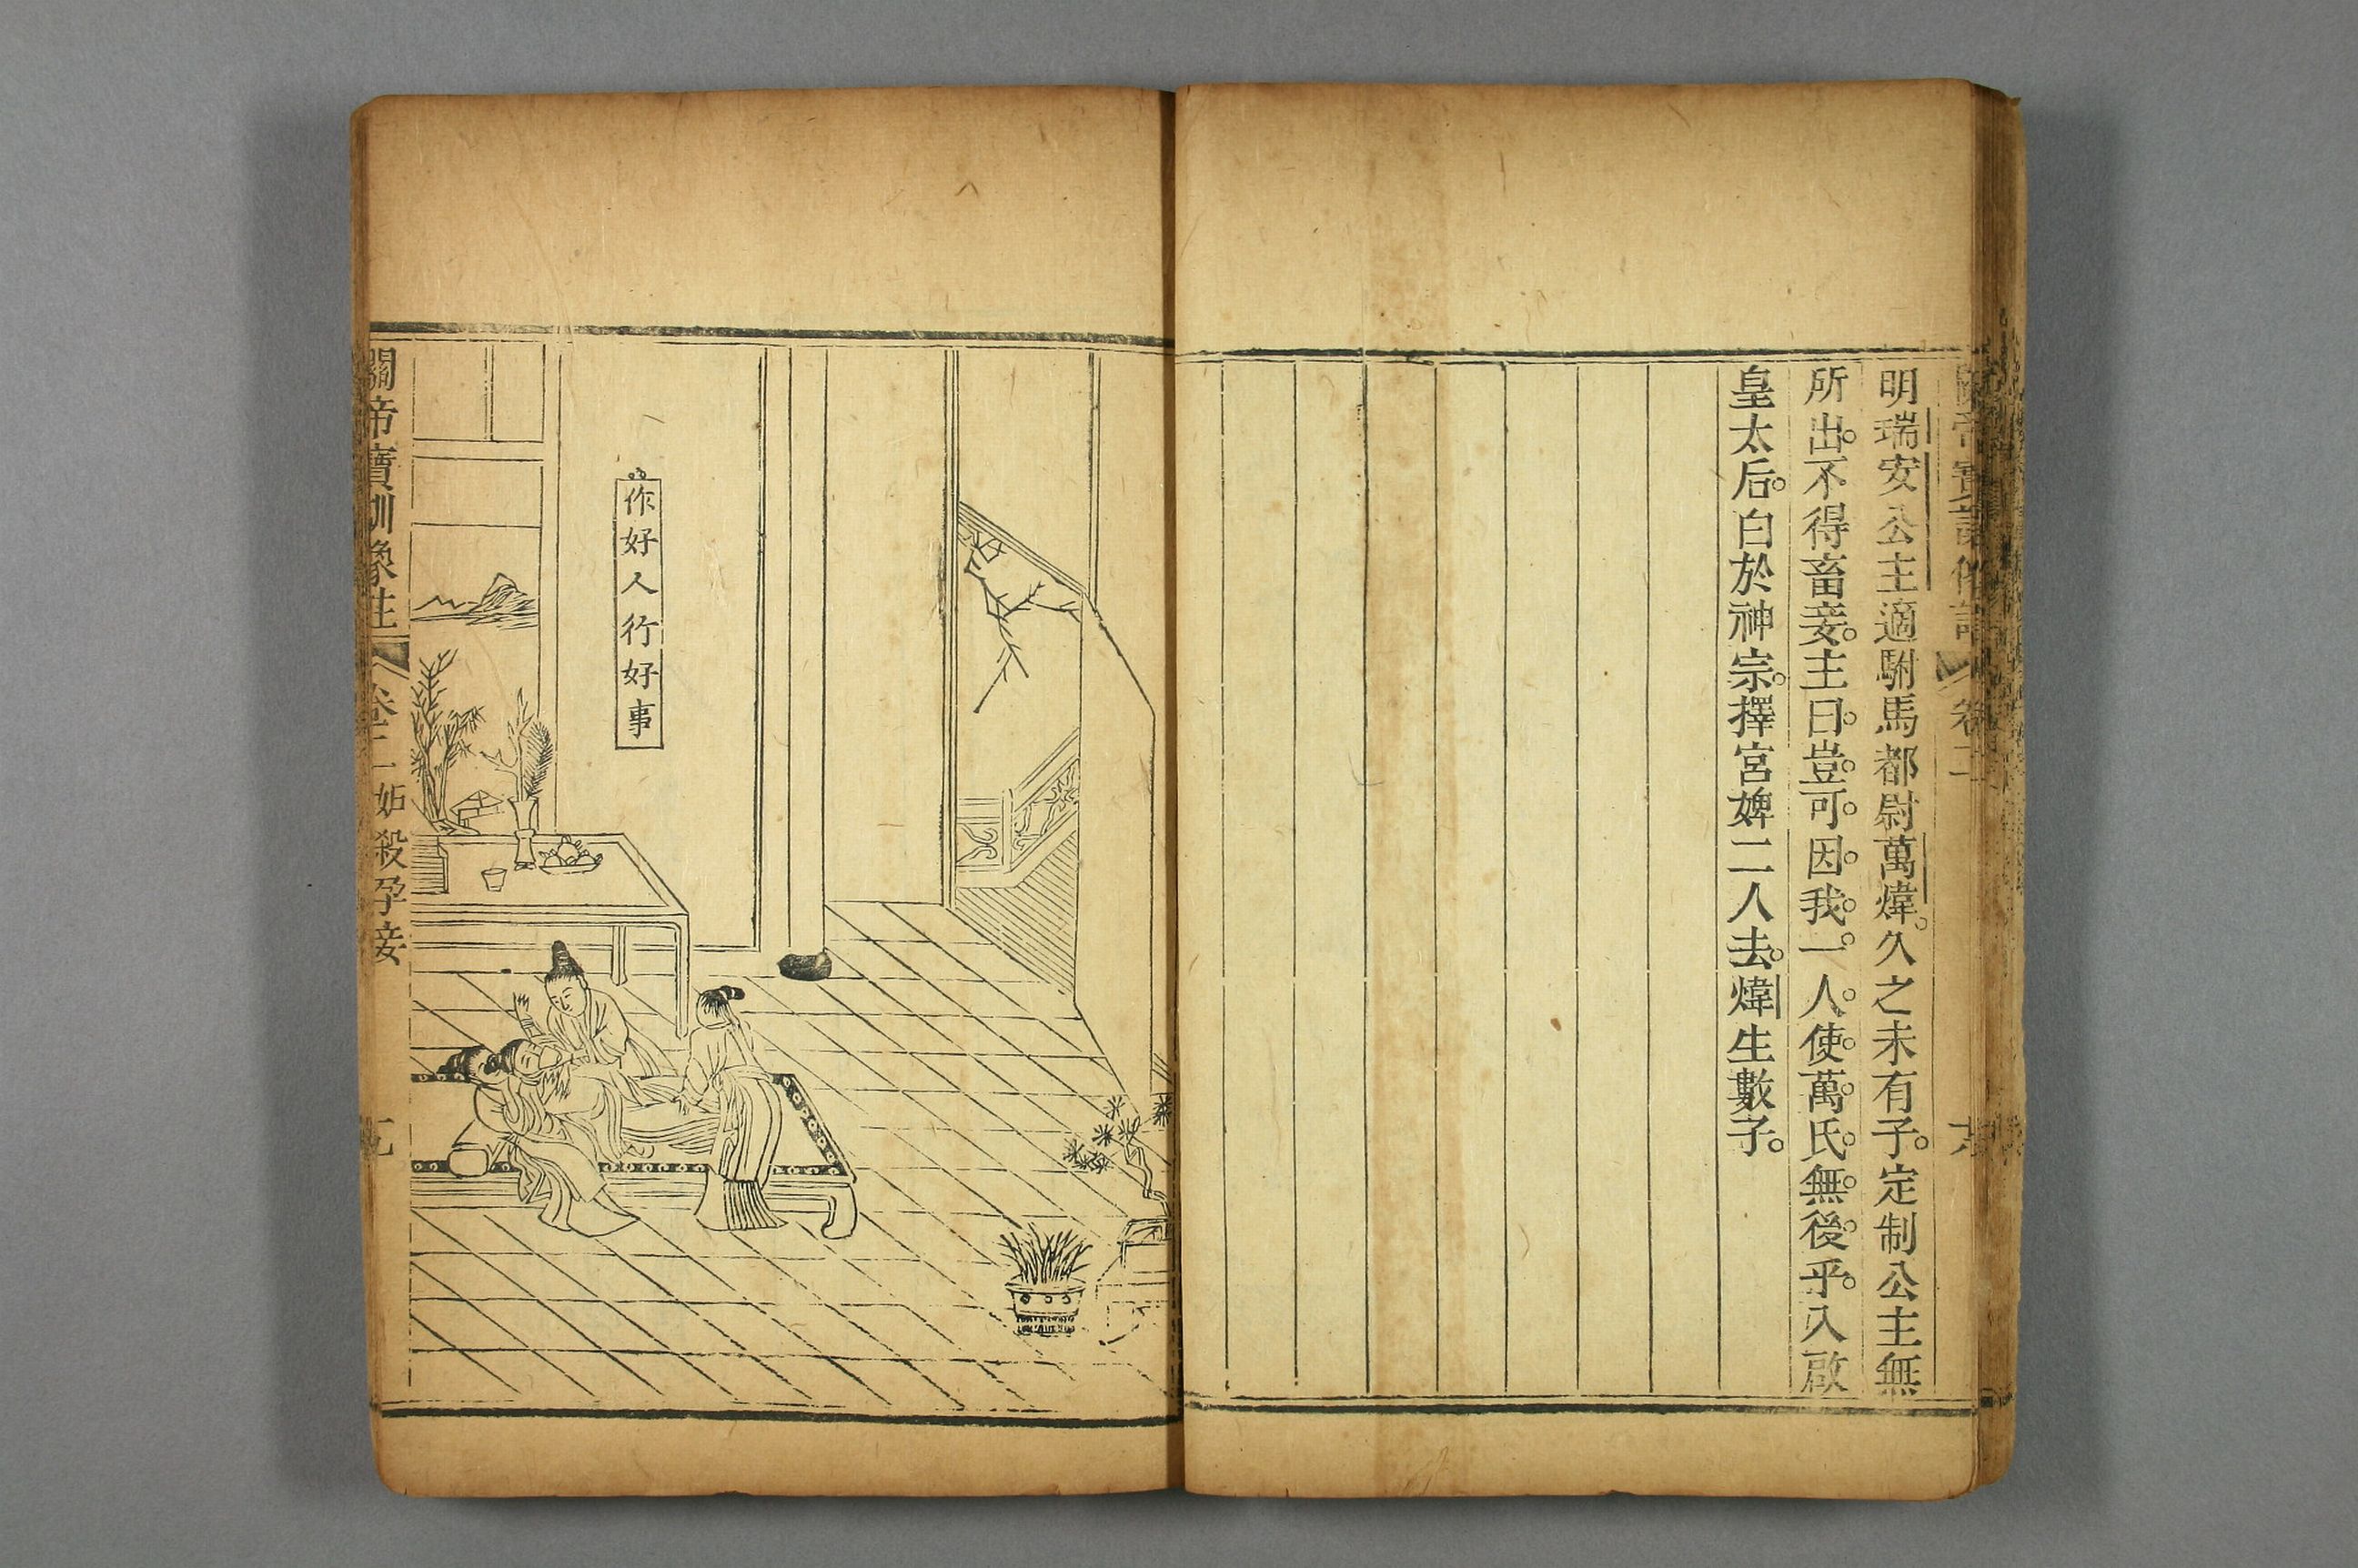 明瑞安公主適駙馬都尉萬煒。久之未有子。定制公主無
所出。不得畜妾。主曰。豈。可。因。我。一。人。使。萬。氏。無。後。乎。入啟
皇太后。白於神宗。擇宮婢二人去。煒生數子。
卷二
作好人行好事
關帝寶訓像註
卷二
妬殺孕妾